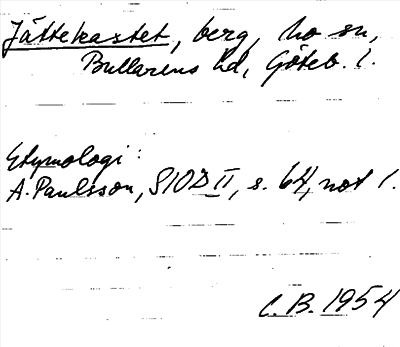 Jättekastet, berg, Mo sn,
Bullarens hd, Göteb. l.
Etymologi:
A. Paulsson, SIOD II, s. 64, not 1.
C. B. 1954